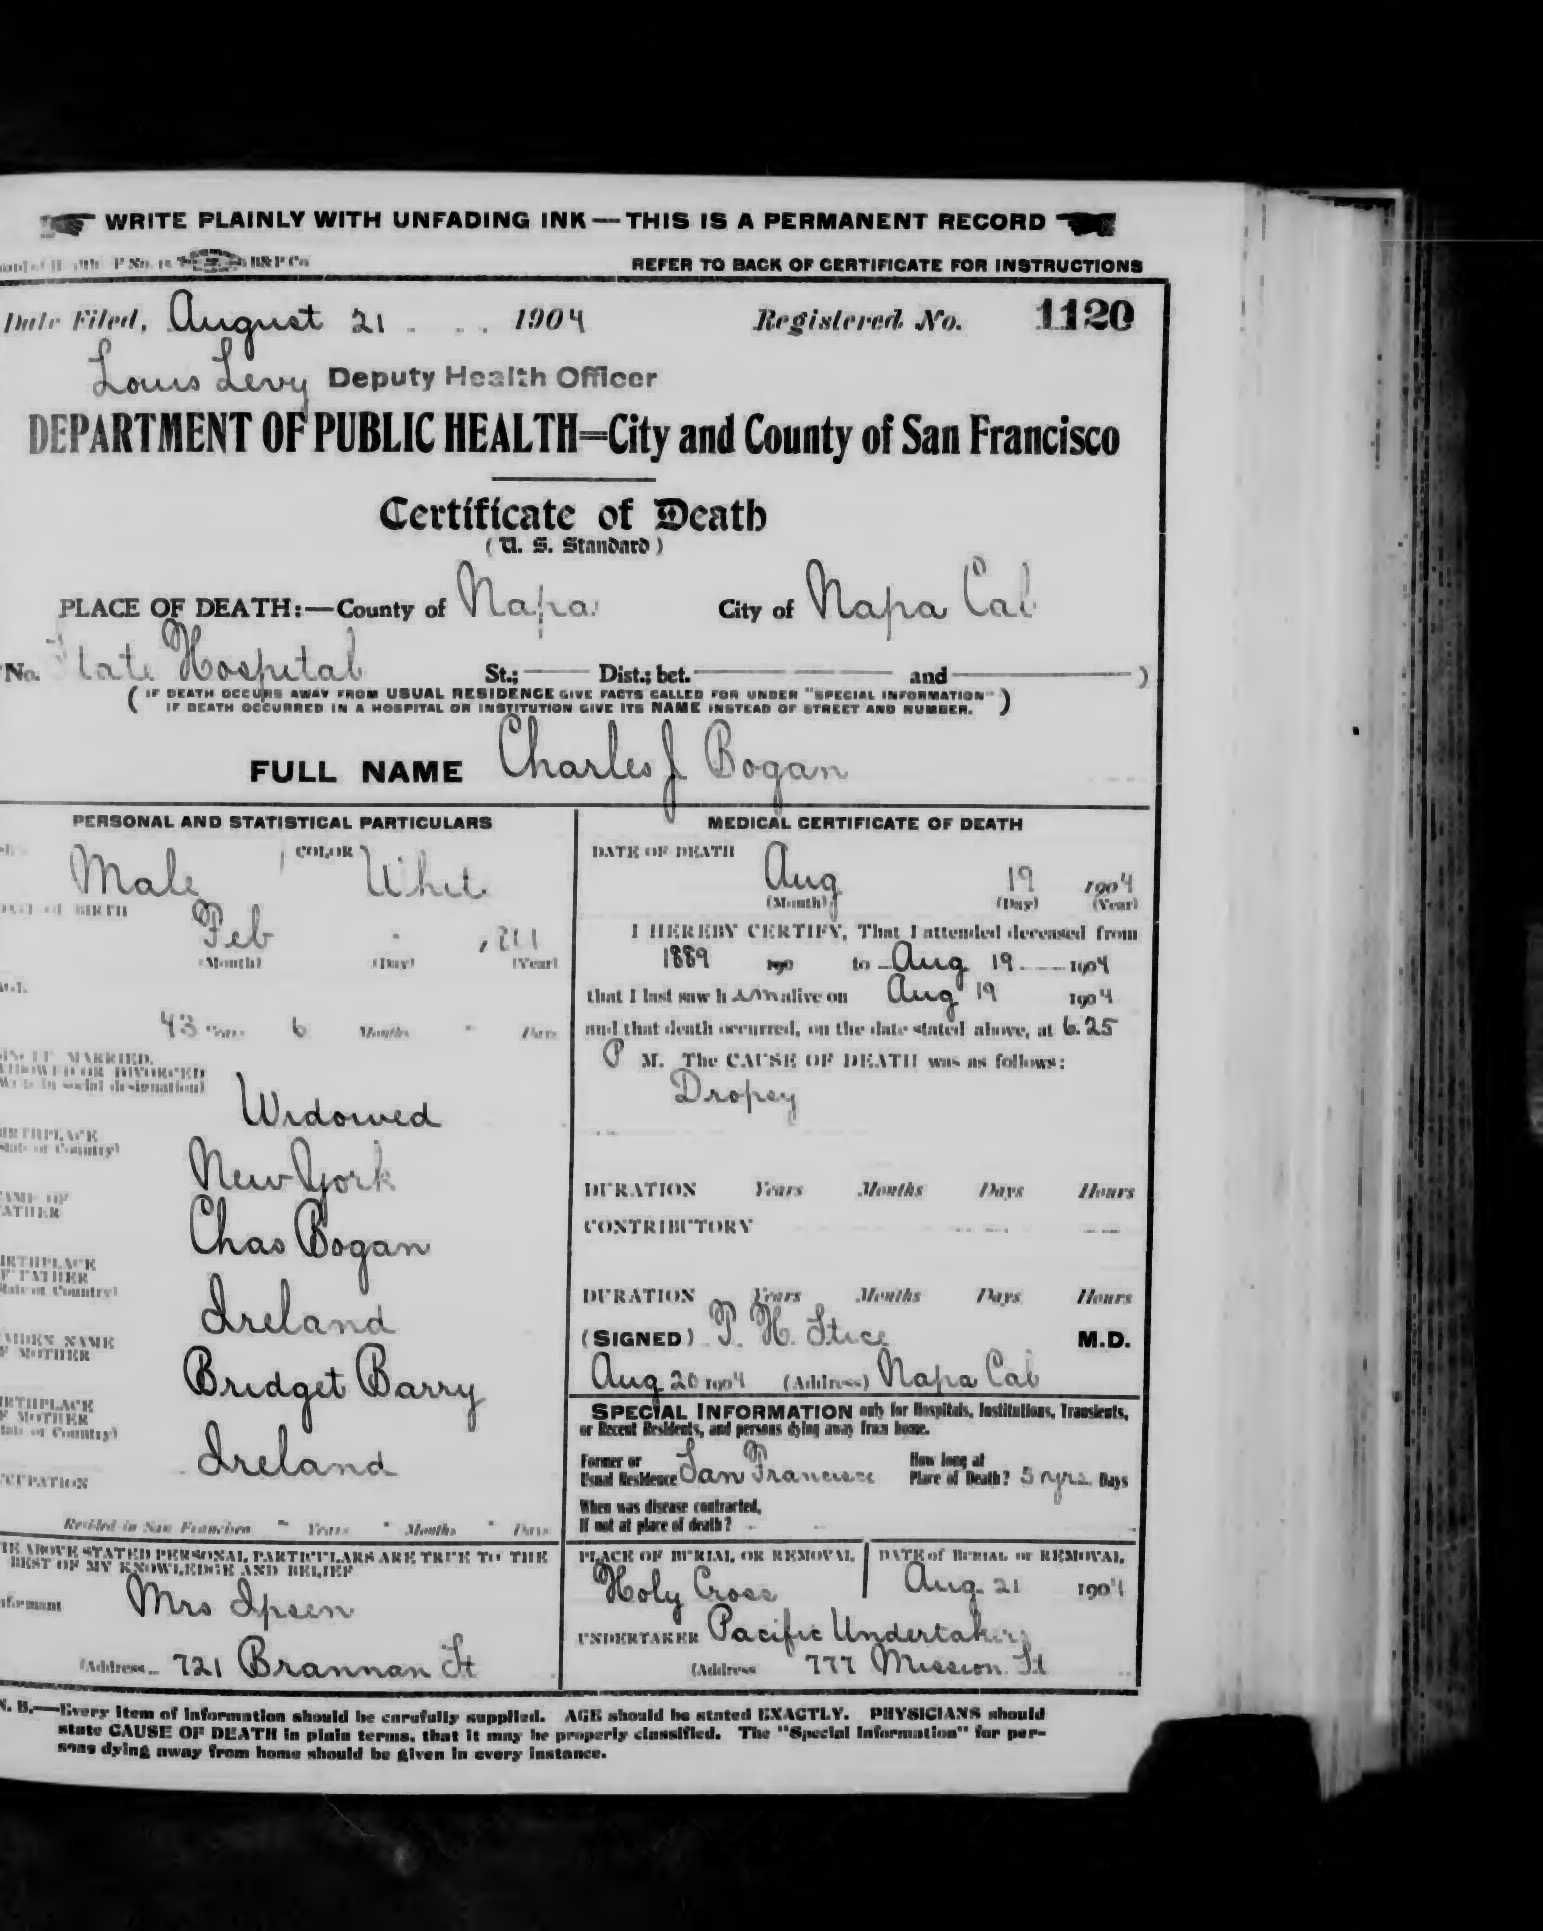 WRITE PLAINLY WITH UNFADING INK — THIS IS A PERMANENT RECORD
B&P Co
REFER TO BACK OF CERTIFICATE FOR INSTRUCTIONS
Date Filed, August 21 1904 Registered No. 1120
Louis Levy Deputy Health Officer
DEPARTMENT OF PUBLIC HEALTH=City and County of San Francisco
Certificate of Death
(U. S. Standard)
PLACE OF DEATH:—County of Napa City of Napa Cal
No. State Hospital St.; Dist.; bet. and )
( IF DEATH OCCURS AWAY FROM USUAL RESIDENCE GIVE FACTS CALLED FOR UNDER "SPECIAL INFORMATION" )
IF DEATH OCCURRED IN A HOSPITAL OR INSTITUTION GIVE ITS NAME INSTEAD OF STREET AND NUMBER.
FULL NAME Charles J Bogan
PERSONAL AND STATISTICAL PARTICULARS
Male COLOR White
OF BIRTH
Feb
(Month) (Day) (Year)
43 Years 6 Months Days
MARRIED,
WIDOWED OR DIVORCED
in social designation)
Widowed
BIRTHPLACE
State or Country)
New York
NAME OF
FATHER
Chas Bogan
BIRTHPLACE
OF FATHER
State or Country)
Ireland
MAIDEN NAME
OF MOTHER
Bridget Barry
BIRTHPLACE
OF MOTHER
State or Country)
Ireland
OCCUPATION
Resided in San Francisco Years Months Days
THE ABOVE STATED PERSONAL PARTICULARS ARE TRUE TO THE
BEST OF MY KNOWLEDGE AND BELIEF
Informant Mrs Ipsen
(Address 721 Brannan St
MEDICAL CERTIFICATE OF DEATH
DATE OF DEATH
Aug 19 1904
(Month) (Day) (Year)
I HEREBY CERTIFY, That I attended deceased from
1889 190 to Aug 19 1904
that I last saw h im alive on Aug 19 1904
and that death occurred, on the date stated above, at 6.25
P M. The CAUSE OF DEATH was as follows:
Dropsy
DURATION Years Months Days Hours
CONTRIBUTORY
DURATION Years Months Days Hours
(SIGNED) P. H. Stice M.D.
Aug 20 1904 (Address) Napa Cal
SPECIAL INFORMATION only for Hospitals, Institutions, Transients,
or Recent Residents, and persons dying away from home.
Former or
Usual Residence San Francisco
How long at
Place of Death? yrs. Days
When was disease contracted,
If not at place of death?
PLACE OF BURIAL OR REMOVAL
Holy Cross
DATE of BURIAL or REMOVAL
Aug. 21 1904
UNDERTAKER Pacific Undertakers
(Address 777 Mission St
N. B.—Every item of information should be carefully supplied. AGE should be stated EXACTLY. PHYSICIANS should
state CAUSE OF DEATH in plain terms, that it may be properly classified. The "Special Information" for per-
sons dying away from home should be given in every instance.